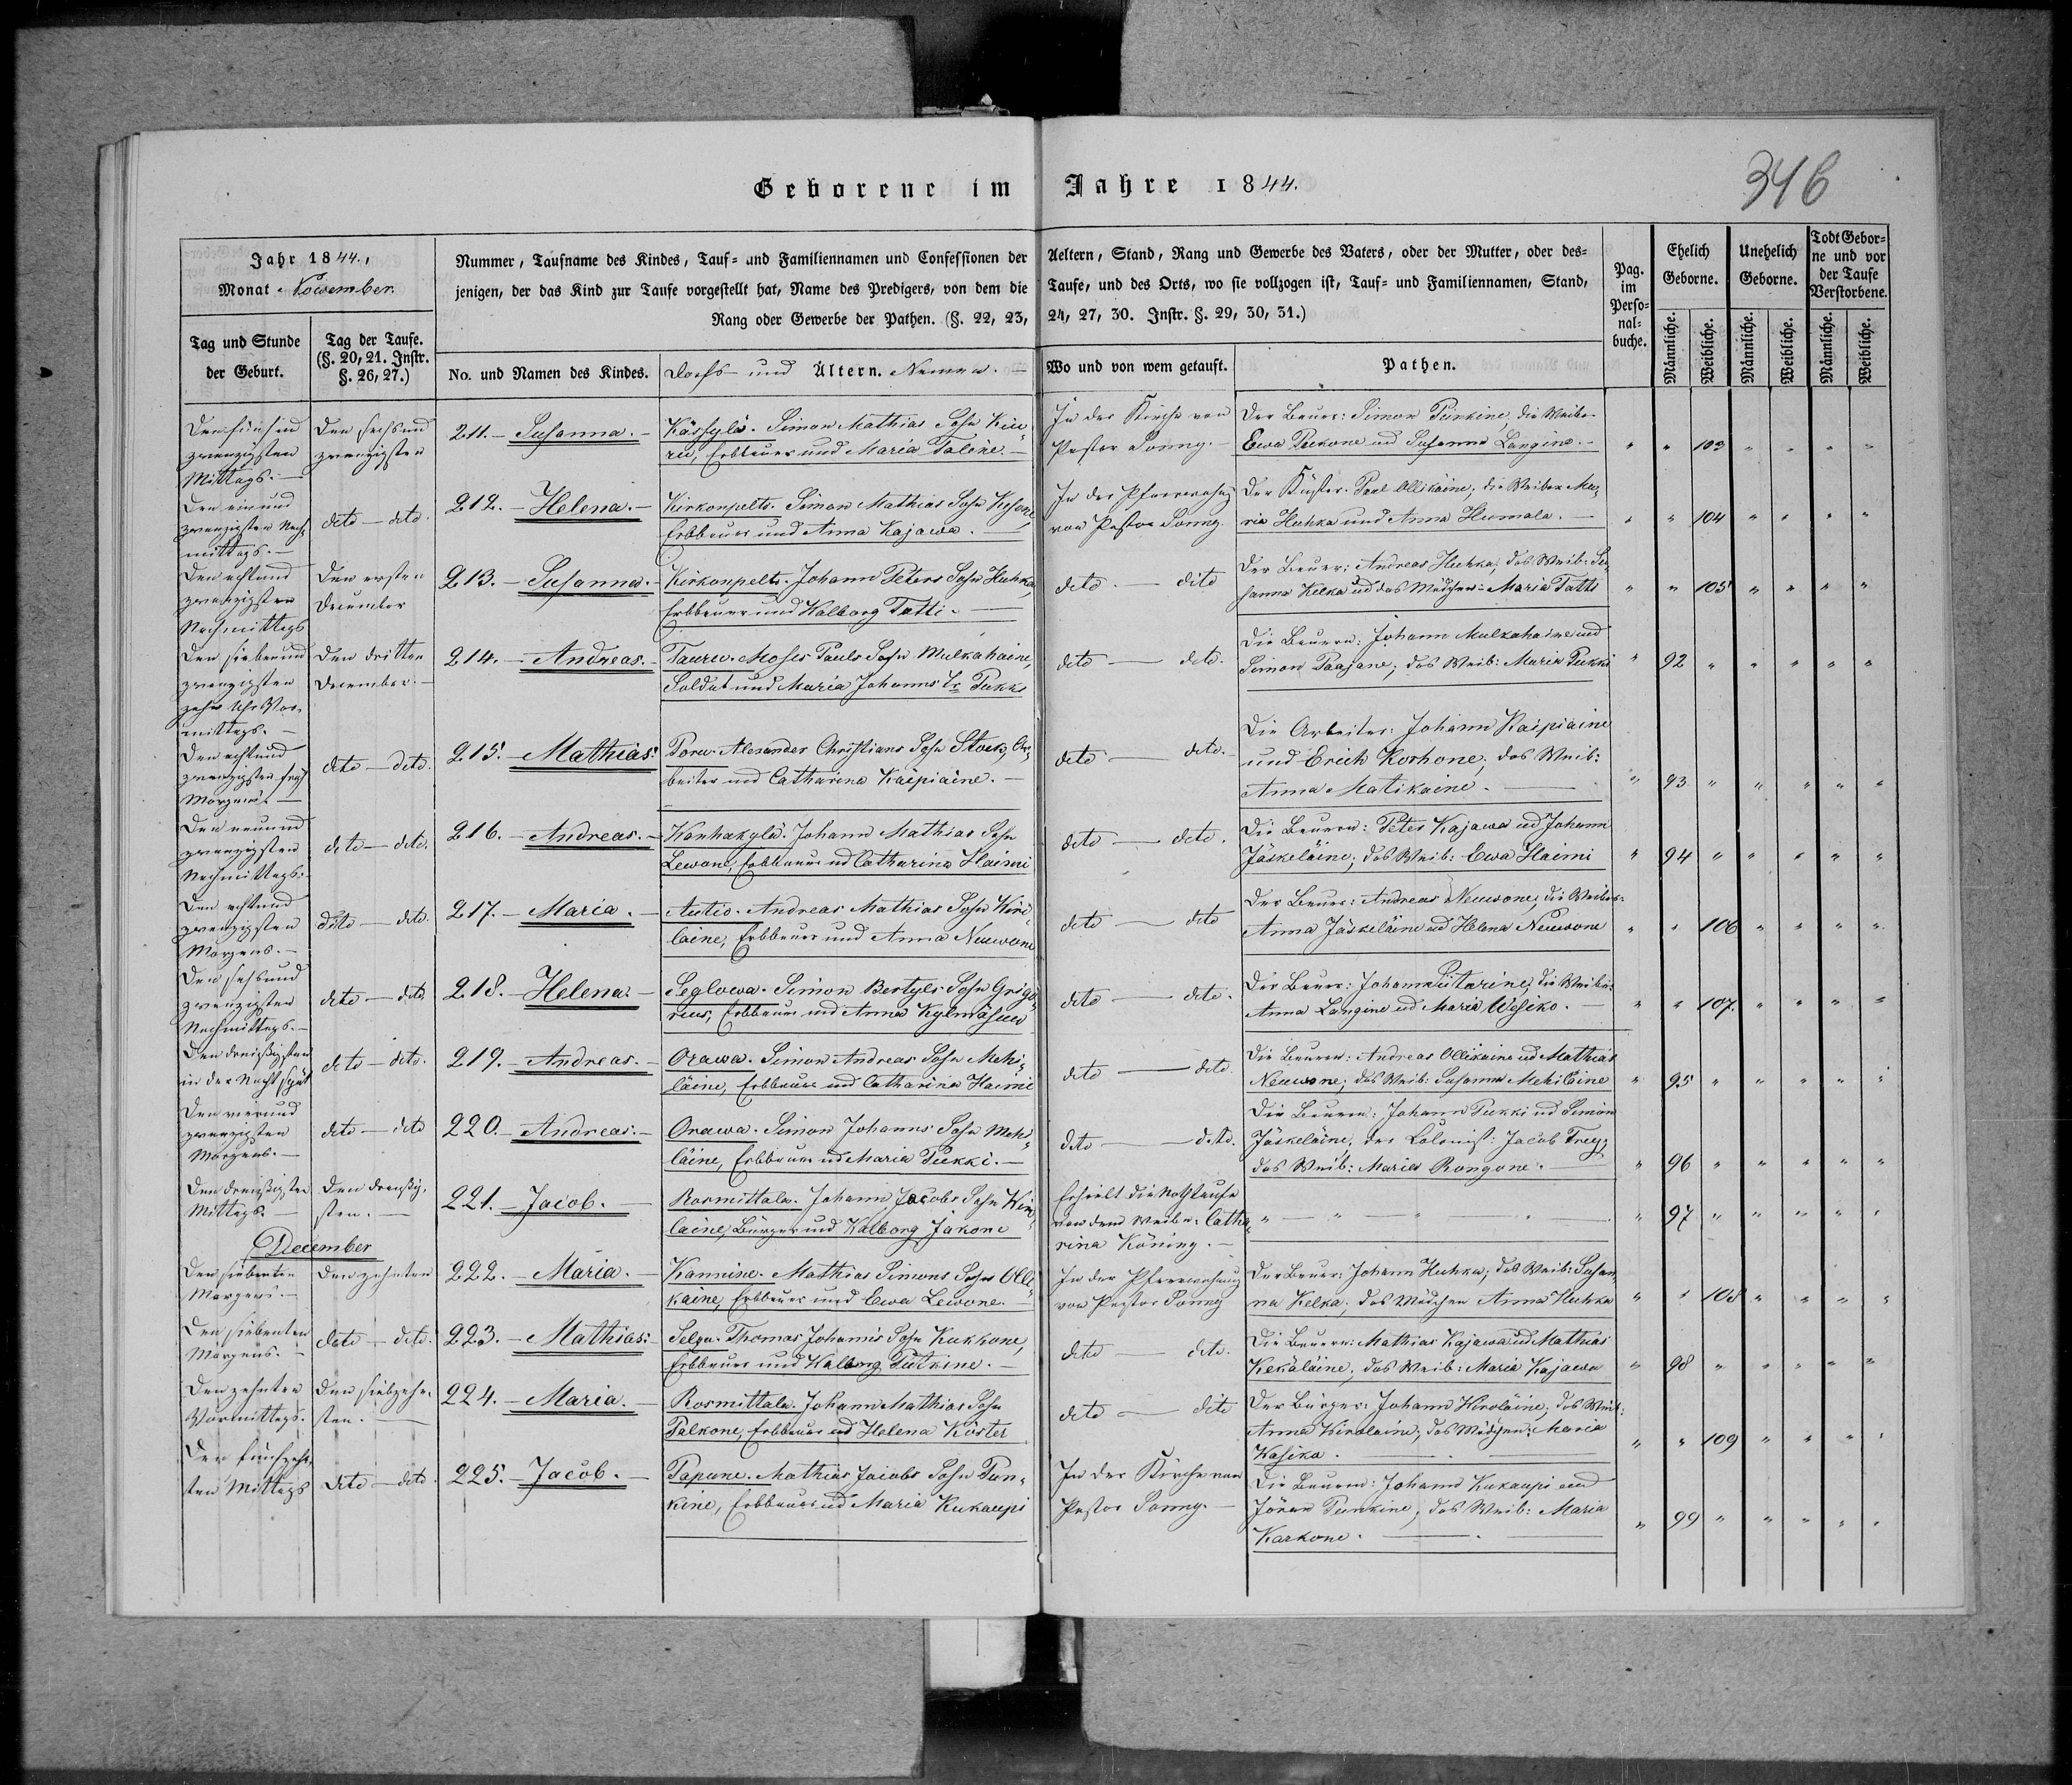 Geborene im Jahre 1844.
346
Jahr 1844.,
Monat November.
Nummer, Taufname des Kindes, Tauf- und Familiennamen und Confessionen der Aeltern, Stand, Rang und Gewerbe des Vaters, oder der Mutter, oder des-
jenigen, der das Kind zur Taufe vorgestellt hat, Name des Predigers, von dem die Taufe, und des Orts, wo sie vollzogen ist, Tauf- und Familiennamen, Stand,
Rang oder Gewerbe der Pathen. (§. 22, 23, 24, 27, 30. Instr. §. 29, 30, 31.)
Pag.
im
Perso-
nal-
buche.
Ehelich
Geborne.
Unehelich
Geborne.
Todt Gebor-
ne und vor
der Taufe
Verstorbene.
Männliche.
Weibliche.
Männliche.
Weibliche.
Männliche.
Weibliche.
Tag und Stunde
der Geburt.
Tag der Taufe.
(§. 20, 21. Instr.
§. 26, 27.)
No. und Namen des Kindes.
Dorfs- und Ältern. Namen.
Wo und von wem getauft.
Pathen.
Den fünf und
zwanzigsten
Mittags.
Den sechsund
zwanzigsten
211. Susanna.
Kässylä. Simon Mathias Sohn Kiu-
ru, Erbbauer und Maria Taleke.
In der Kirche von
Pastor Sonny.
Der Bauer: Simon Punkine, die Weiber
Ewa Pukkone und Susanna Langine.
103
Den ein und
zwanzigsten Nach-
mittags.
dito dito.
212. Helena.
Kirkonpelto. Simon Mathias Sohn
Erbbauer und Anna Kajawa.
In der Pfarrwohng
von Pastor Sonny.
Der Küster Paul Ollikäine, die Weiber Ma-
ria Huhka und Anna Humala.
104
Den achtund
zwanzigsten
Nachmittags
Den ersten
December
213. Susanna.
Kirkonpelto. Johann Peters Sohn Huhka,
Erbbauer und Walborg Tatti.
dito dito
Der Bauer: Andreas Huhka; das Weib: Su-
sanna Kelka ud das Mädchen: Maria Tatti
105
Den siebenund
zwanzigsten
zehn Uhr Vor-
mittags.
Den dritten
December.
214. Andreas.
Tauru. Moses Pauls Sohn Mulkahaine,
Soldat und Maria Johanns Tr Pukki
dito dito.
Die Bauern: Johann Mulkahaine und
Simon Paajane; das Weib: Maria Pukki
92
Den achtund
zwanzigsten früh
Morgens.
dito dito.
215. Mathias.
Poru. Alexander Christians Sohn Stock, Ar-
beiter und Catharina Kaipiaine.
dito dito.
Die Arbeiter: Johann Kaipiaine
und Erich Korhone; das Weib:
Anna Matikaine.
93
Den neunund
zwanzigsten
Nachmittags.
dito dito.
216. Andreas.
Wanhakylä. Johann Mathias Sohn
Lewone, Erbbauer und Catharina Haimi
dito dito.
Die Bauern: Peter Kajawa ud Johann
Jäskeläine; das Weib: Ewa Haimi
94
Den achtund
zwanzigsten
Morgens.
dito dito
217. Maria.
Autio. Andreas Mathias Sohn Wiro-
laine, Erbbauer und Anna Neuwone
dito dito
Der Bauer: Andreas Neuwone; die Weiber:
Anna Jäskeläine ud Helena Neuwone
106
Den sechsund
zwanzigsten
Nachmittags.
dito dito.
218. Helena.
Seglowa. Simon Bertyls Sohn Grigo-
rius, Erbbauer und Anna Kylmäsuu
dito dito.
Der Bauer: Johann Putarine; die Weiber
Anna Langine ud Maria Wesiko.
107.
Den dreißigsten
in der Nacht spät
dito dito.
219. Andreas.
Orawa. Simon Andreas Sohn Mehi-
läine, Erbbauer und Catharina Haimi
dito dito.
Die Bauern: Andreas Ollikaine ud Mathias
Neuwone; das Weib: Susanna Mehiläine
95
Den vierund
zwanzigsten
Morgens.
dito dito
220. Andreas.
Orawa. Simon Johanns Sohn Mehi-
läine, Erbbauer ud Maria Pukki.
dito dito.
Die Bauern: Johann Pukki ud Simon
Jäskeläine; der Colonist: Jacob Frey;
das Weib: Maria Rongone.
96
Den dreißigsten
Mittags.
Den dreißig-
sten.
221. Jacob.
Rosmittala. Johann Jacobs Sohn
laine, Bürger und Walborg Jakone
Erhielt die Nothtaufe
von dem Weibe: Catha-
rina Köning.
97
December
Den siebenten
Morgens.
Den zehnten
222. Maria.
Kannine. Mathias Simons Sohn Olli-
kaine, Erbbauer und Ewa Lewone.
In der Pfarrwohnung
von Pastor Sonny
Der Bauer: Johann Huhka; das Weib: Susan-
na Kelka; das Mädchen Anna Huhka
108
Den siebenten
Morgens.
dito dito.
223. Mathias.
Selga. Thomas Johanns Sohn Kukkone,
Erbbauer und Walborg Putkine.
dito dito.
Die Bauern: Mathias Kajawa ud Mathias
Kekäläine; das Weib: Maria Kajawa
98
Den zehnten
Vormittags.
Den siebzehn-
ten.
224. Maria.
Rosmittala. Johann Mathias Sohn
Palkone, Erbbauer und Helena Köster
dito dito
Der Bürger: Johann Wirolaine; das Weib:
Anna Wirolaine; das Mädchen: Maria
Wasika.
109
Den fünfzehn-
ten Mittags
dito dito.
225. Jacob.
Papune. Mathias Jacobs Sohn Pun-
kine, Erbbauer ud Maria Kukaupi
In der Kirche von
Pastor Sonny.
Die Bauern: Johann Kukaupi und
Jöran Punkine; das Weib: Maria
Karkone.
99